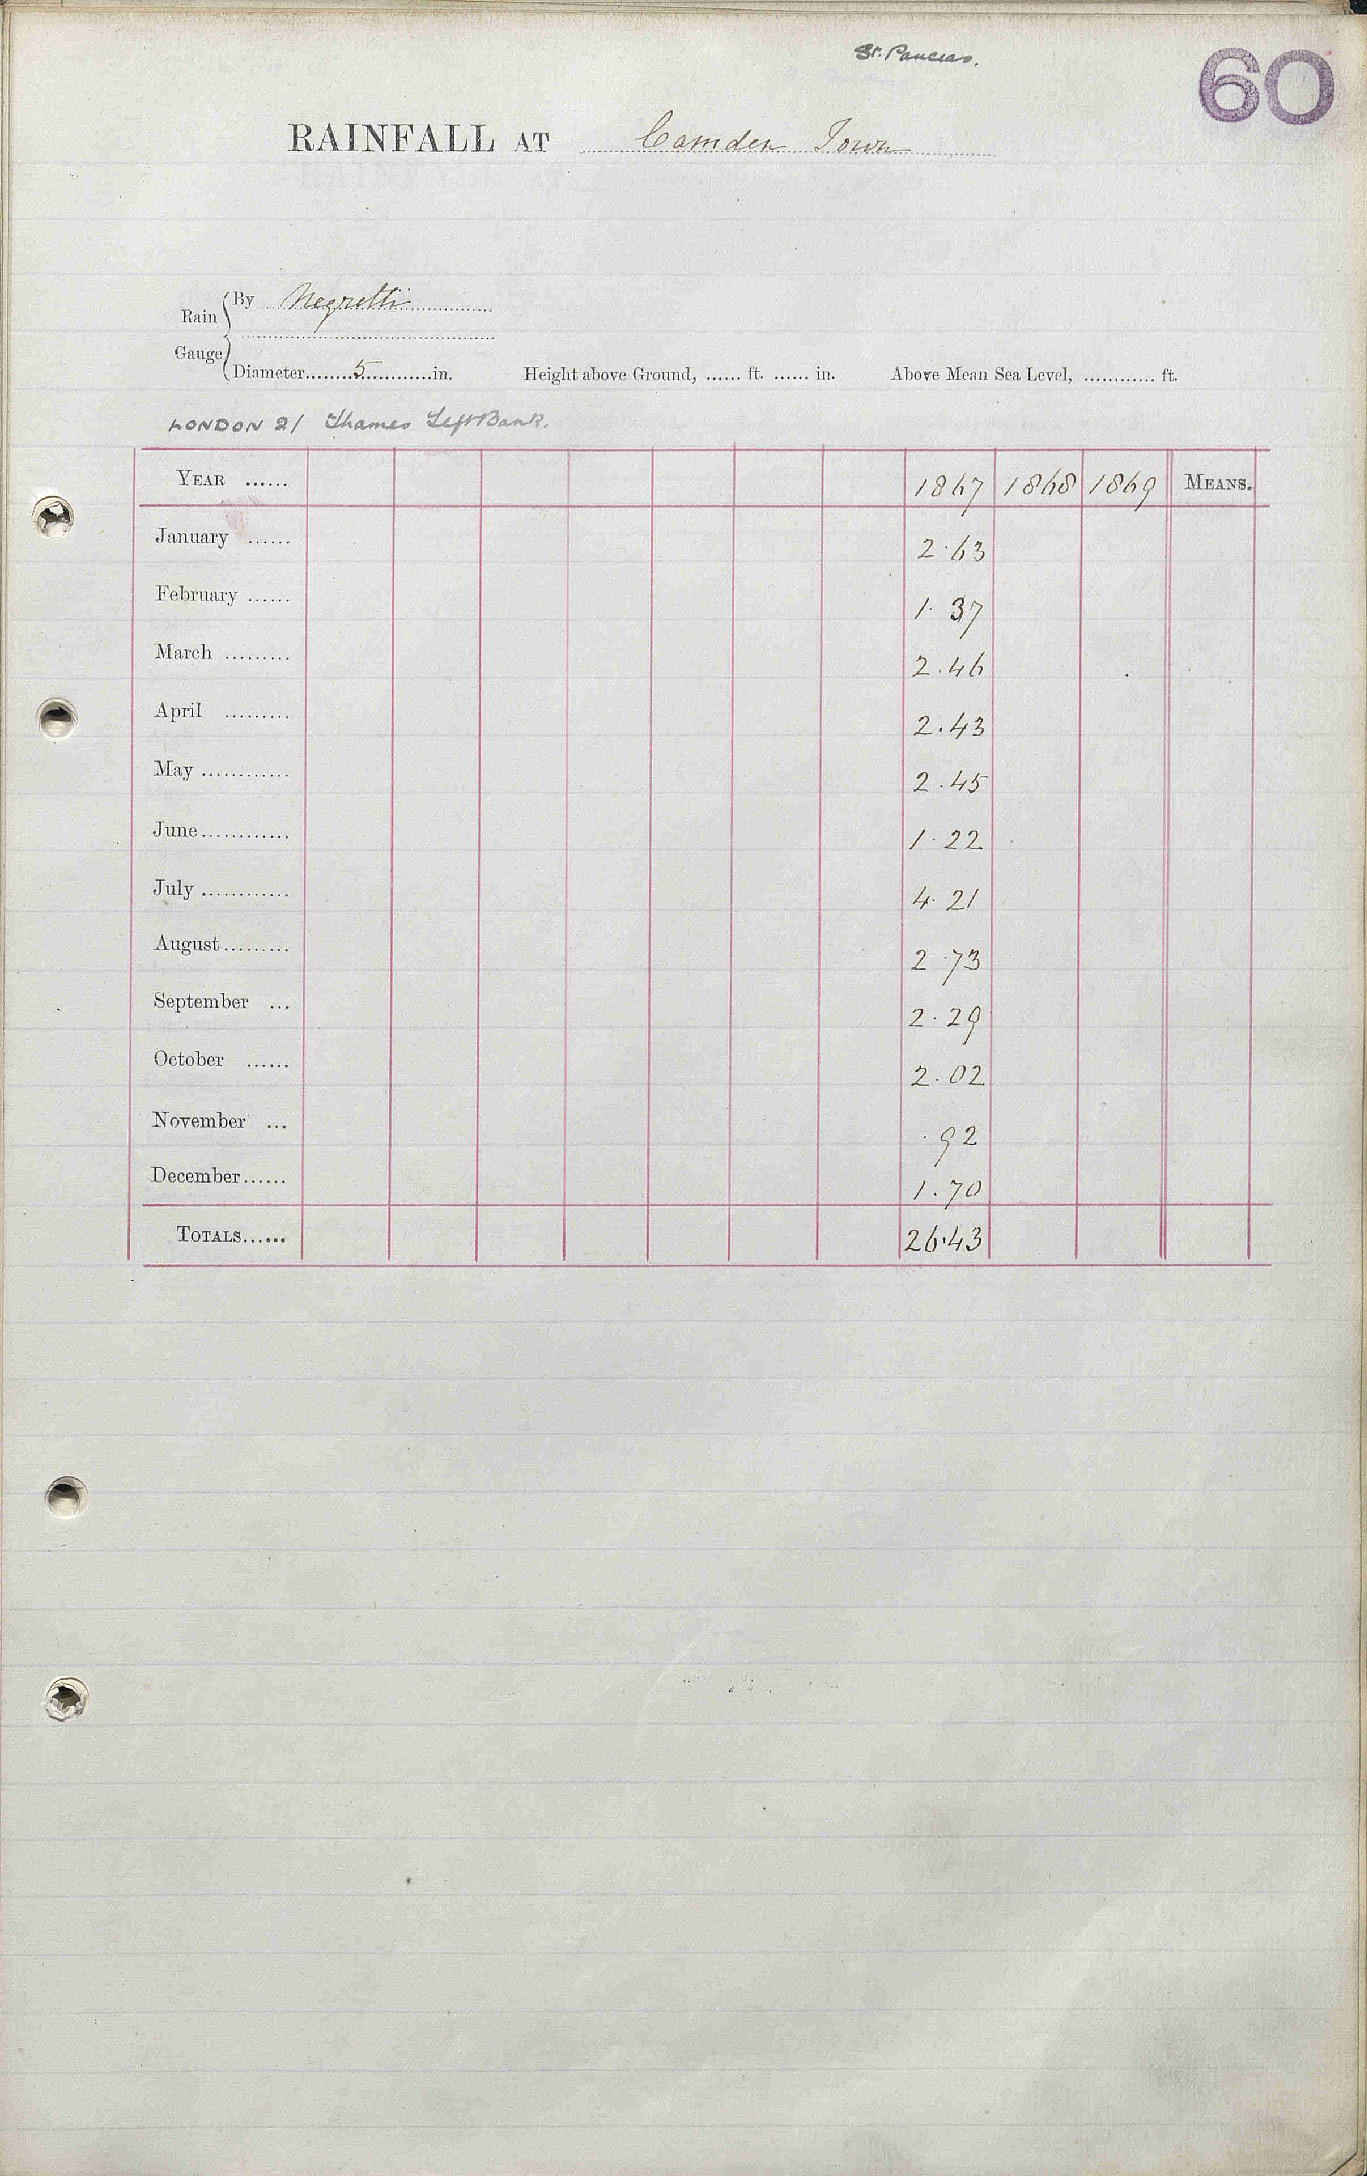 St. Pancras.
60
RAINFALL AT Camden Town
Rain Gauge
By Negretti
Diameter........5............in. Height above Ground, ...... ft. ...... in. Above Mean Sea Level, ............ ft.
LONDON 21 Thames Left Bank.
YEAR ...... 1867 1868 1869 MEANS.
January ...... 2.63
February ...... 1.37
March ......... 2.46
April ......... 2.43
May ............ 2.45
June............ 1.22
July ............ 4.21
August......... 2.73
September ... 2.29
October ...... 2.02
November ... .92
December...... 1.70
TOTALS...... 26.43